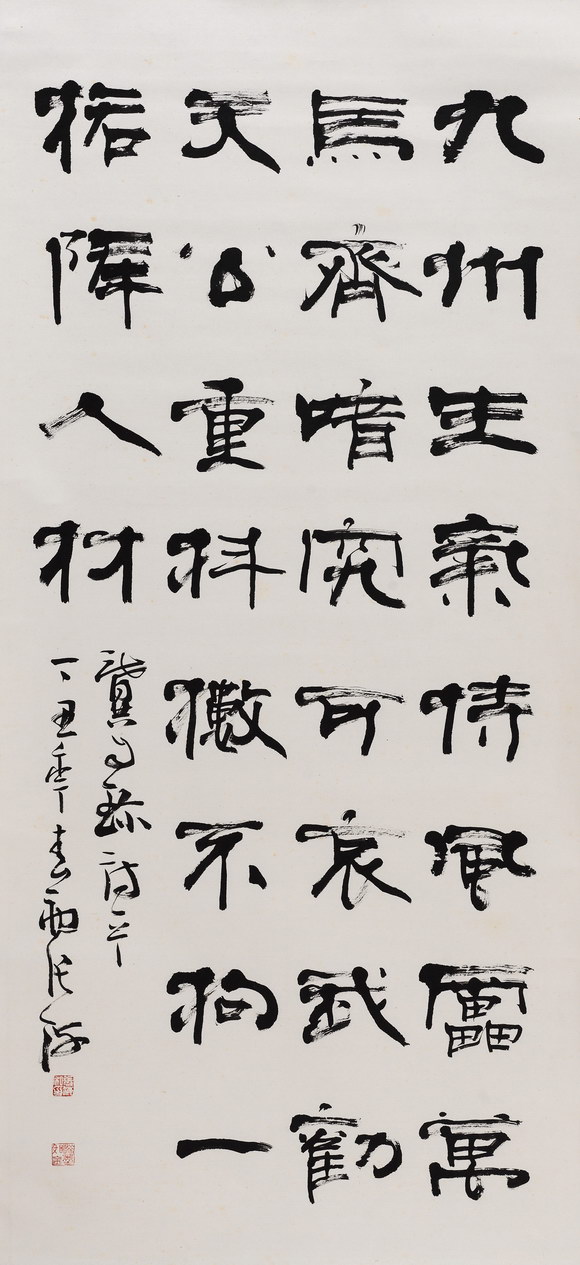 九州生氣恃風靁萬
馬齊喑究可哀我勸
天公重抖擻不拘一
格降人材
龔自珍詩
丁丑年